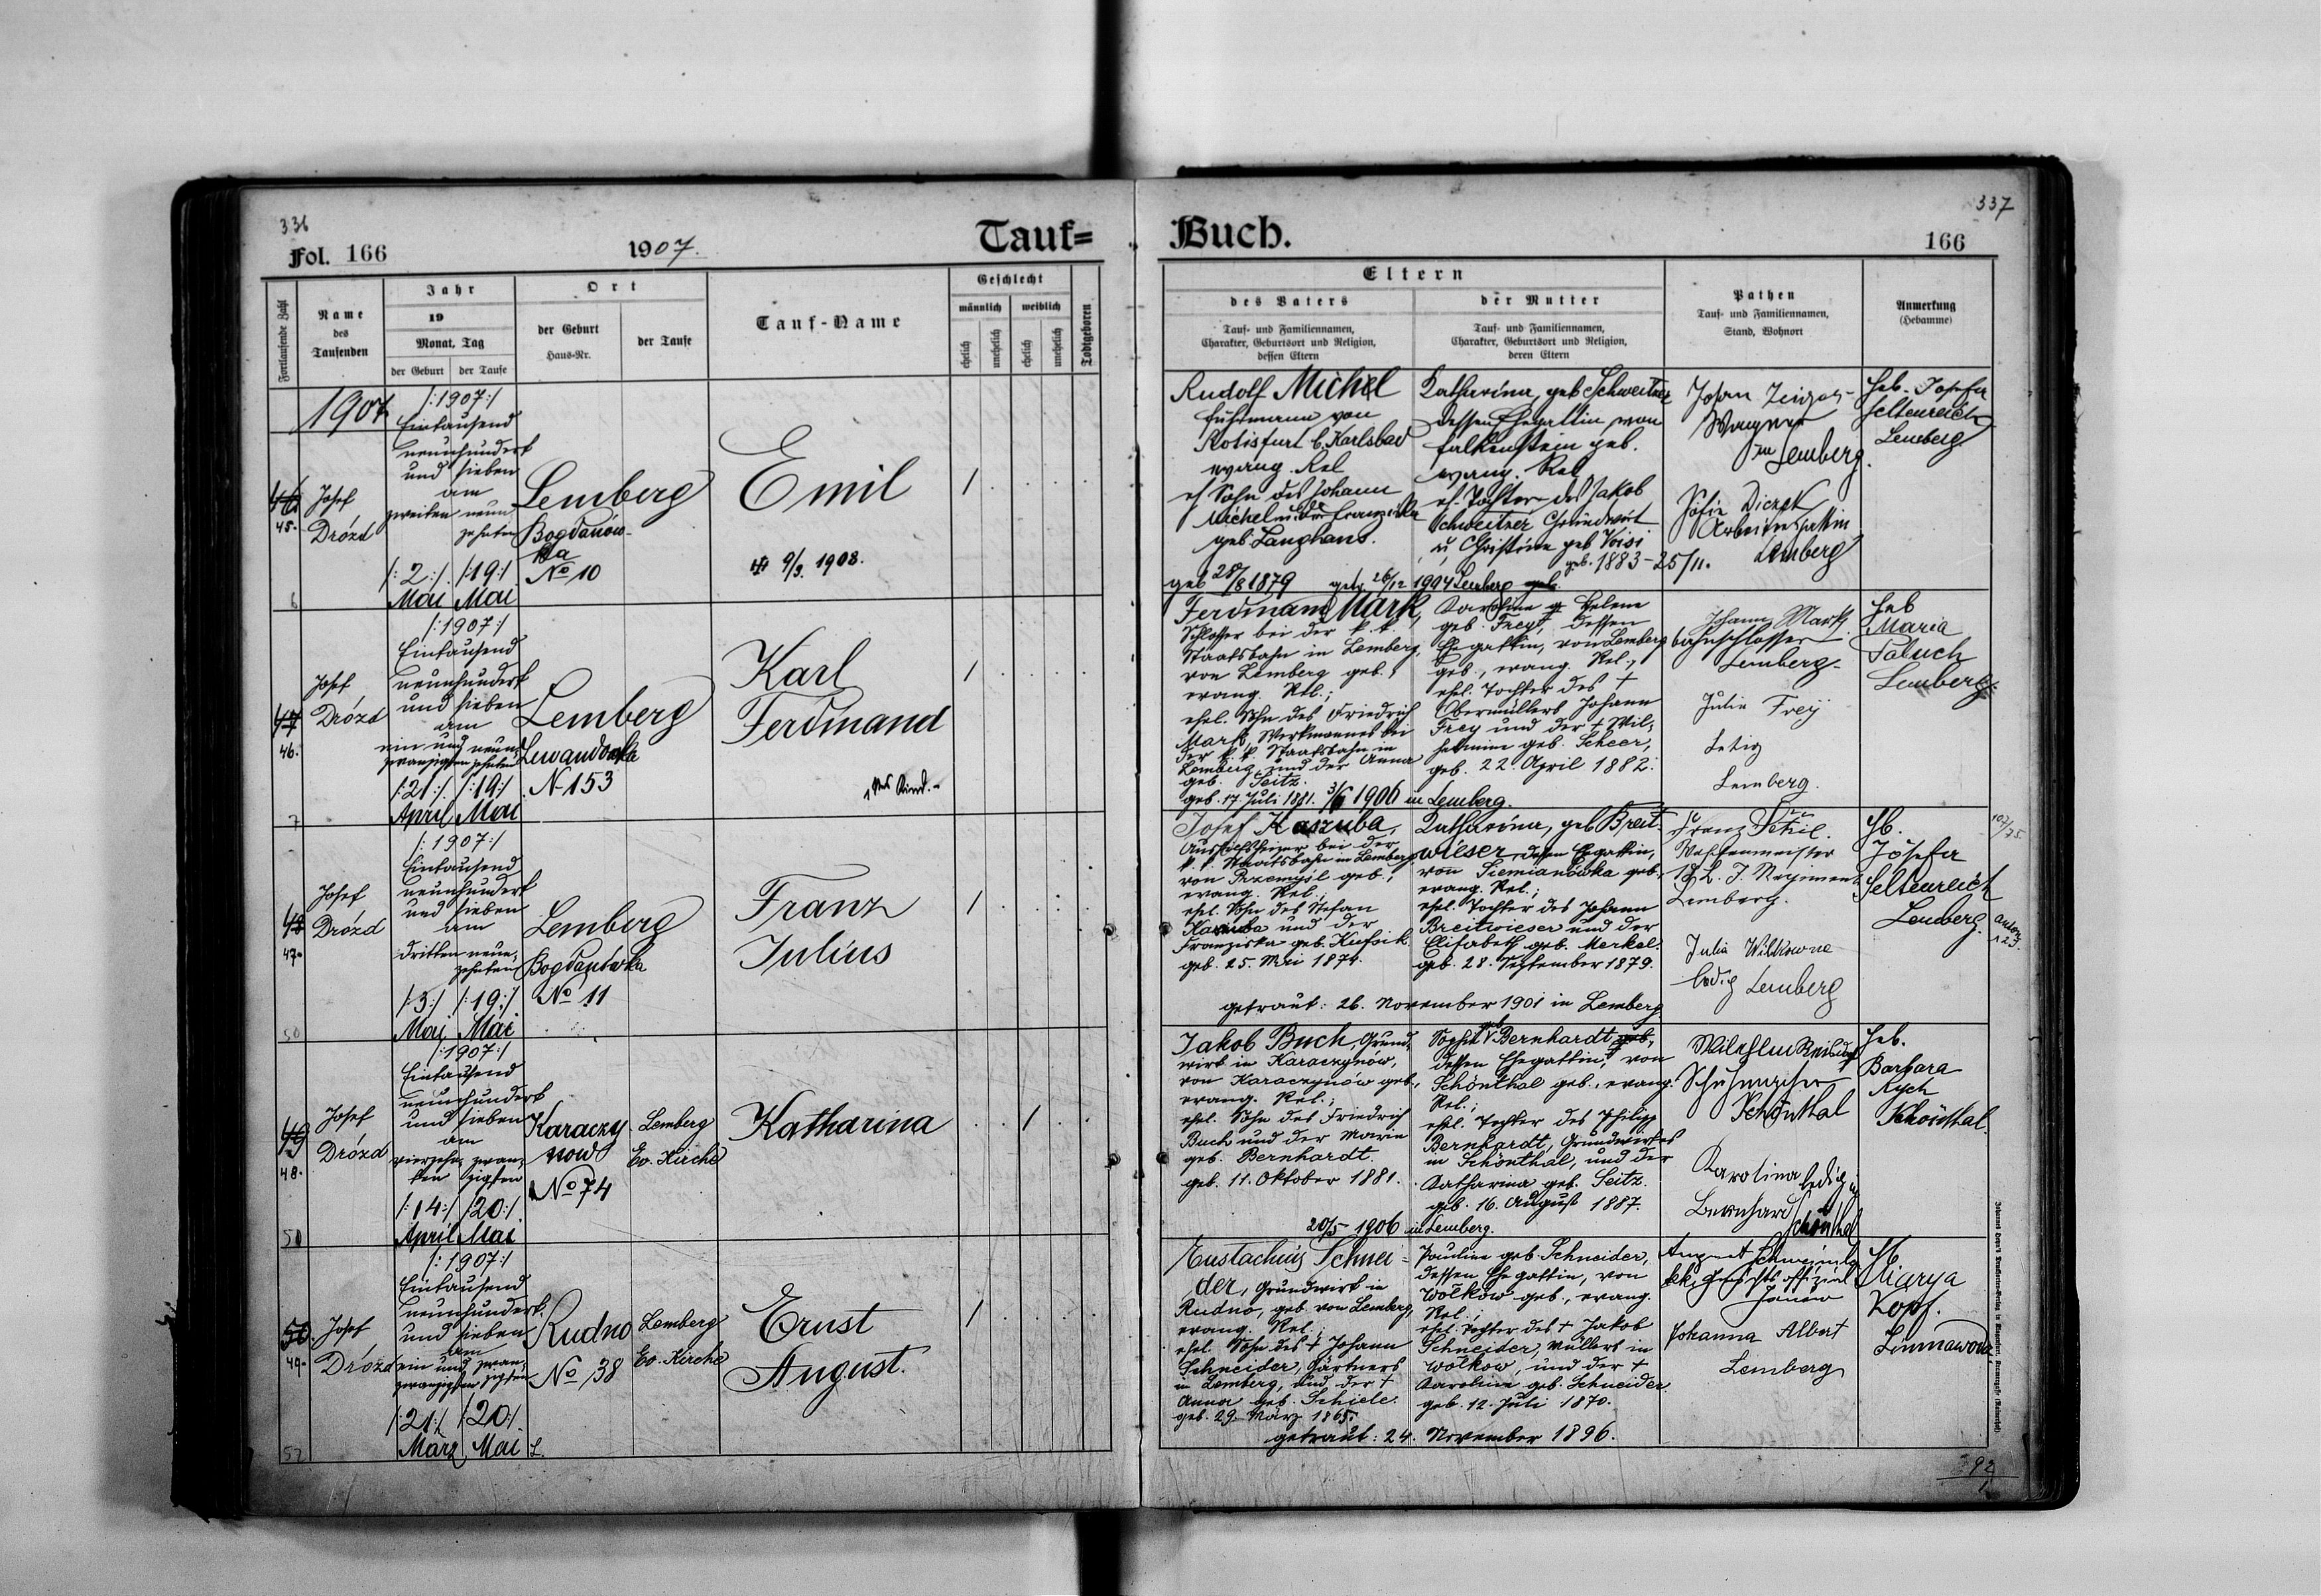 336
Fol. 166
1907.
Tauf=
Fortlaufende Zahl
Name
des
Taufenden
Jahr
19
Monat, Tag
der Geburt
der Taufe
Ort
der Geburt
Haus-Nr.
der Taufe
Tauf-Name
Geschlecht
männlich
weiblich
ehelich
unehelich
ehelich
unehelich
Todtgeboren
1907
46
45.
Josef
Drózd
/:1907:/
Eintausend
neunhundert
und sieben
am
zweiten neun
zehnten
/:2:/ /:19:/
Mai Mai
Lemberg
Bogdanow-
ka
No 10
Emil
9/3. 1908.
1
6
47
46.
Josef
Drózd
/:1907:/
Eintausend
neunhundert
und sieben
am
ein und neun
zwanzigsten zehnten
/:21:/ /:19:/
April Mai
Lemberg
Lewandowka
N 153
Karl
Ferdinand
1tes Kind.
1
7
48
47.
Josef
Drózd
/:1907:/
Eintausend
neunhundert
und sieben
am
dritten neun,
zehnten
/:3:/ /:19:/
Mai Mai
Lemberg
Bogdanówka
No 11
Franz
Julius
1
50
49
48.
Josef
Drózd
/:1907:/
Eintausend
neunhundert
und sieben
am
vierzehn, zwan,
ten zigsten
/:14:/ /:20:/
April Mai
Karaczy
now
No 74
Lemberg
Ev. Kirche
Katharina
1
51
50.
49.
Josef
Drózd
/:1907:/
Eintausend
neunhundert
und sieben
am
ein und zwan,
zwanzigsten zigsten
/:21:/ /:20:/
März Mai
Rudno
No 38
Lemberg
Ev. Kirche
Ernst
August.
1
52
337
Buch.
166
Eltern
des Vaters
Tauf- und Familiennamen,
Charakter, Geburtsort und Religion,
dessen Eltern
der Mutter
Tauf- und Familiennamen,
Charakter, Geburtsort und Religion,
deren Eltern
Pathen
Tauf- und Familiennamen,
Stand, Wohnort
Anmerkung
(Hebamme)
Rudolf Michel
Fuhrmann von
Rotisfurt b. Karlsbad
evang. Rel
eh Sohn des Johann
Michel u der Franziska
geb. Langhans.
geb 28/8 1879
Katharina, geb Schweitzer
dessen Ehegattin von
Falkenstein geb.
evang. Rel
eh. Tochter des Jakob
Schweitzer Grundwirt
u Christine geb
geb. 1883 - 25/11.
Lemberg
Johan
Wagner
in Lemberg.
Sofie
Arbeitersgattin
Lemberg
Heb. Josefa
Seltenreich
Lemberg
Ferdinand Mark,
Schlosser bei der k. k.
Staatsbahn in Lemberg,
von Lemberg geb.,
evang. Rel.;
ehel. Sohn des Friedrich
Mark, Werkmannes bei
der k. k. Staatsbahn in
Lemberg, und der Anna
geb. Seitz.
geb. 17. Juli 1881. 1906 in Lemberg.
Karoline Helene
geb. Frey, dessen
Ehegattin, von Lemberg
geb., evang. Rel.,
ehel. Tochter des †
Obermüllers Johann
Frey und der † Wil,
helmine geb. Scheer,
geb. 22. April 1882.
Johann Mark
bahnschlosser
Lemberg.
Julia Frey
Ledig
Lemberg.
Heb
Maria
Tabuch
Lemberg.
Josef Kaszuba,
Aushilfsheizer bei der
k. k. Staatsbahn in Lemberg,
von Przemysl geb.,
evang. Rel.;
ehel. Sohn des Stefan
Kaszuba und der
Franziska geb.
geb. 25. Mai 1874.
Katharina, geb Breit-
wieser, dessen Ehegattin,
von Siemianówka geb.,
evang. Rel.;
ehel. Tochter des Johann
Breitwieser und der
Elisabeth geb. Merkel.
geb. 28. September 1879.
getraut: 26. November 1901 in Lemberg
Franz
L. J. Regiment
Lemberg.
Julia Wilkowne
ledig Lemberg
Hb.
Josefa
Seltenreich
Lemberg.
Jakob Buch, Grund,
wirt in Karaczynów,
von Karaczynów geb.,
evang. Rel.;
ehel. Sohn des Friedrich
Buch und der Marie
geb. Bernhardt.
geb. 11. Oktober 1881.
Sophie geb Bernhardt,
dessen Ehegattin, von
Schönthal geb., evang.
Rel.;
ehel. Tochter des Philipp
Bernhardt, Grundwirtes
in Schönthal, und der
Katharina geb. Seitz.
geb. 16. August 1887.
20/5 1906 in Lemberg.
Wilhelm
Schuhmacher
Schönthal
Karolina ledig in
Bernhard Schönthal
Heb.
Barbara
Rych
Schönthal.
Eustachius Schnei-
der, Grundwirt in
Rudno, geb. von Lemberg,
evang. Rel.;
ehel. Sohn des † Johann
Schneider, Gärtners
in Lemberg, und der †
Anna geb. Schiele.
geb. 29. März 1865.
Pauline geb. Schneider,
dessen Ehegattin, von
Wolkow geb., evang.
Rel.;
ehel. Tochter des † Jakob
Schneider, Müllers in
Wolkow, und der †
Karoline geb. Schneider
geb. 12. Juli 1870.
getraut: 24. November 1896.
August
Janow
Johanna Albert
Lemberg
Hb
Marya
Kopf.
Zimnawoda
92